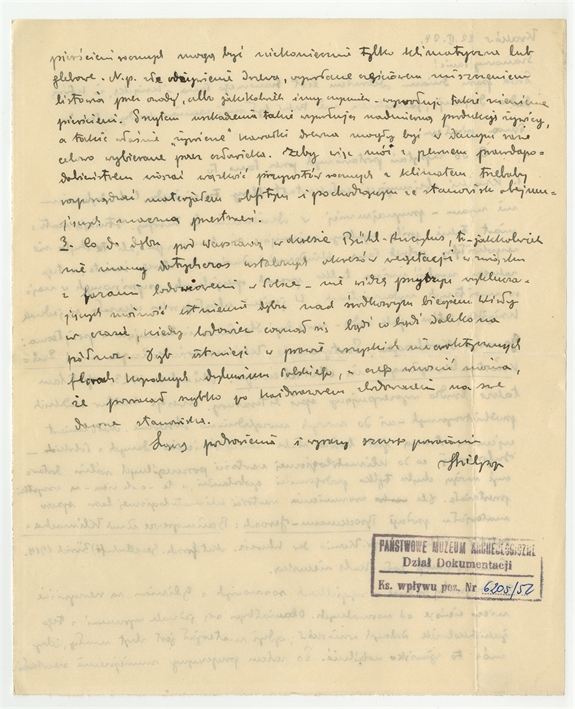 pierścieni rocznych mogą być niekoniecznie tylko klimatyczne lub
glebowe. N.p. drzewa, wywołane częściowem niszczeniem
listowia przez owady, albo jakikolwiek inny czynnik - wywołuje także
pierścieni. Innymi uszkodzenia takie wywołują nadmierną produkcję żywicy,
a takie właśnie kawałki drewna mogły być w danym razie
celowo wybierane przez człowieka. Żeby więc móc z pewnem prawdopo-
dobieństwem wiązać wąskość przyrostów rocznych z klimatem trzebaby
rozporządzać materjałem obfitym i pochodzącym ze stanowisk obejmu-
jących znaczną przestrzeń.
3. Co do dębu pod Warszawą w okresie Bühl-Ancylus, to jakkolwiek
nie mamy dotychczas ustalonych okresów vegetacji w związku
z fazami lodowcowemi w Polsce - nie widzę przyczyn wyklucza-
jących możność istnienia dębu nad środkowym biegiem Wisły
w czasie, kiedy lodowiec cofnął się bądź co bądź daleko na
północ. Dąb istnieje w prawie wszystkich niearktycznych
florach kopalnych dyluwium Polskiego, z czego wnosić można,
że powracał szybko po każdorazowem zlodowaceniu na swe
dawne stanowiska.
Łączę pozdrowienia i wyrazy szczerego poważania
PAŃSTWOWE MUZEUM ARCHEOLOGICZNE
Dział Dokumentacji
Ks. wpływu poz. Nr 6205/52